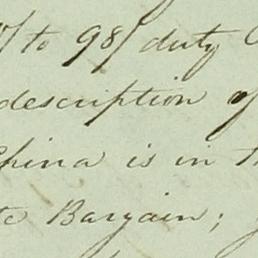 / to 98/ duty
description of
China is in
Bargain;